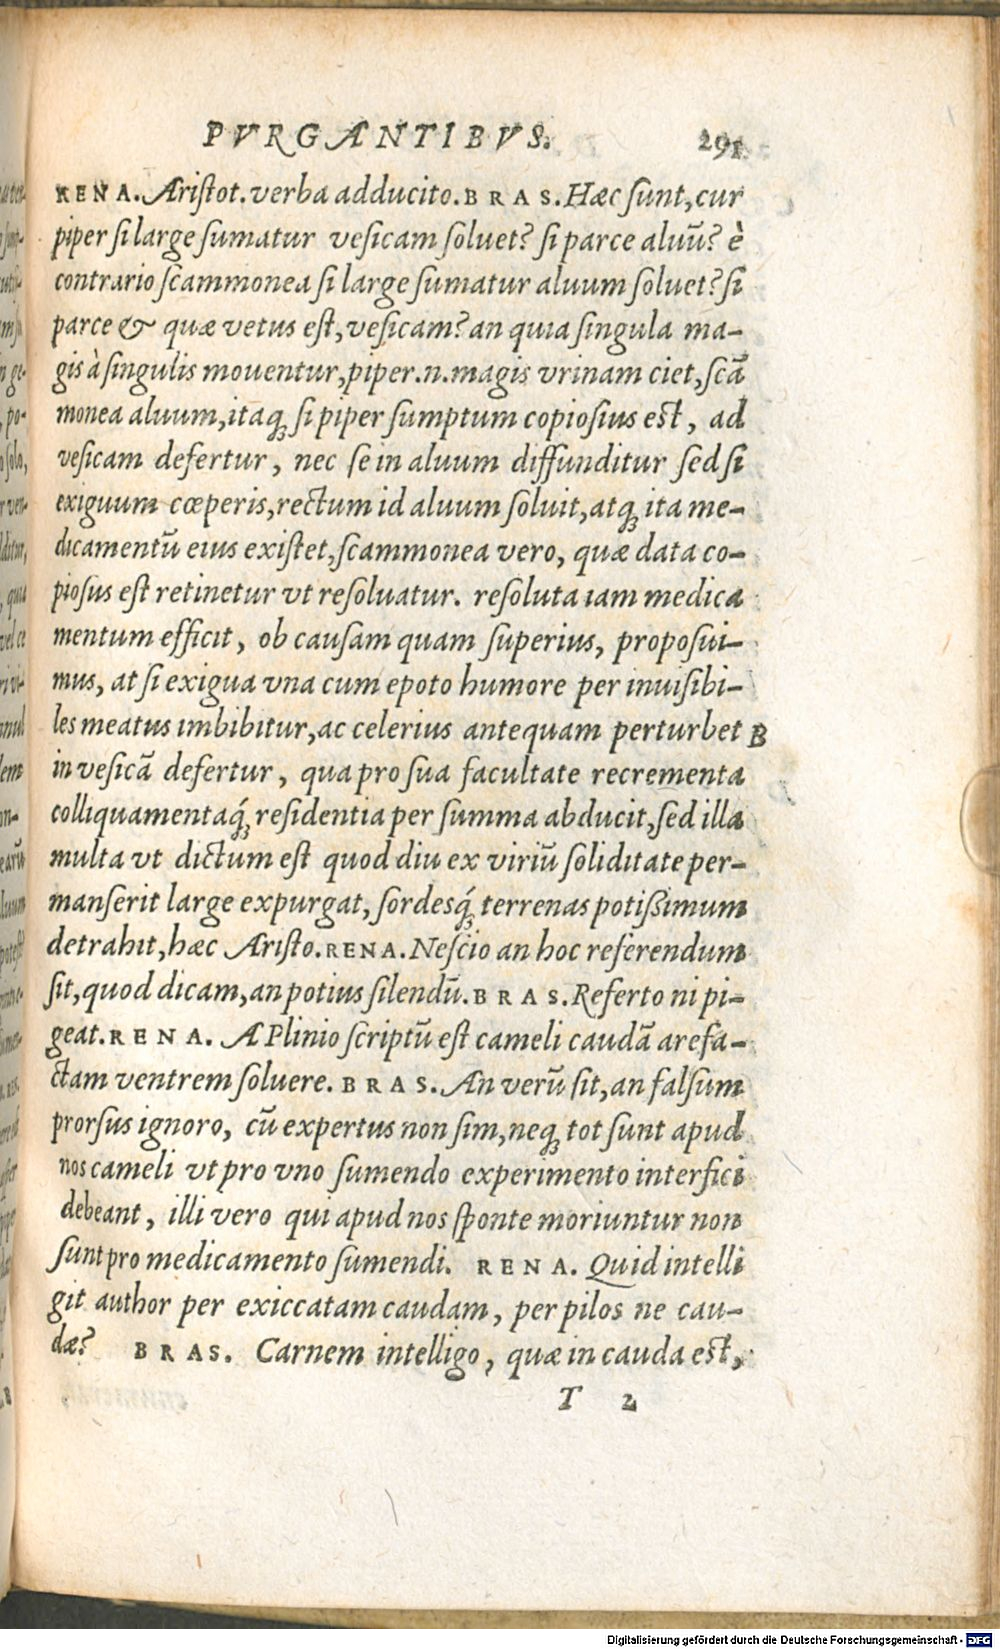 PVRGANTIBVS. 291
RENA. Aristot. verba adducito. BRAS. Hæc sunt, cur
piper si large sumatur vesicam soluet? si parce aluū? è
contrario scammonea si large sumatur aluum soluet? si
parce & quæ vetus est, vesicam? an quia singula ma-
gis à singulis mouentur, piper .n. magis vrinam ciet, scā
monea aluum, itaq; si piper sumptum copiosius est, ad
vesicam defertur, nec se in aluum diffunditur sed si
exiguum cœperis, rectum id aluum soluit, atq; ita me-
dicamentū eius existet, scammonea vero, quæ data co-
piosus est retinetur vt resoluatur. resoluta iam medica
mentum efficit, ob causam quam superius, proposui-
mus, at si exigua vna cum epoto humore per inuisibi-
les meatus imbibitur, ac celerius antequam perturbet B
in vesicā defertur, qua pro sua facultate recrementa
colliquamentaq́; residentia per summa abducit, sed illa
multa vt dictum est quod diu ex viriū soliditate per-
manserit large expurgat, sordesq́; terrenas potissimum
detrahit, hæc Aristo. RENA. Nescio an hoc referendum
sit, quod dicam, an potius silendū. BRAS. Referto ni pi-
geat. RENA. A Plinio scriptū est cameli caudā arefa-
ctam ventrem soluere. BRAS. An verū sit, an falsum
prorsus ignoro, cū expertus non sim, neq; tot sunt apud
nos cameli vt pro vno sumendo experimento interfici
debeant, illi vero qui apud nos sponte moriuntur non
sunt pro medicamento sumendi. RENA. Quid intelli
git author per exiccatam caudam, per pilos ne cau-
dæ? BRAS. Carnem intelligo, quæ in cauda est,
T 2
Digitalisierung gefördert durch die Deutsche Forschungsgemeinschaft - DFG